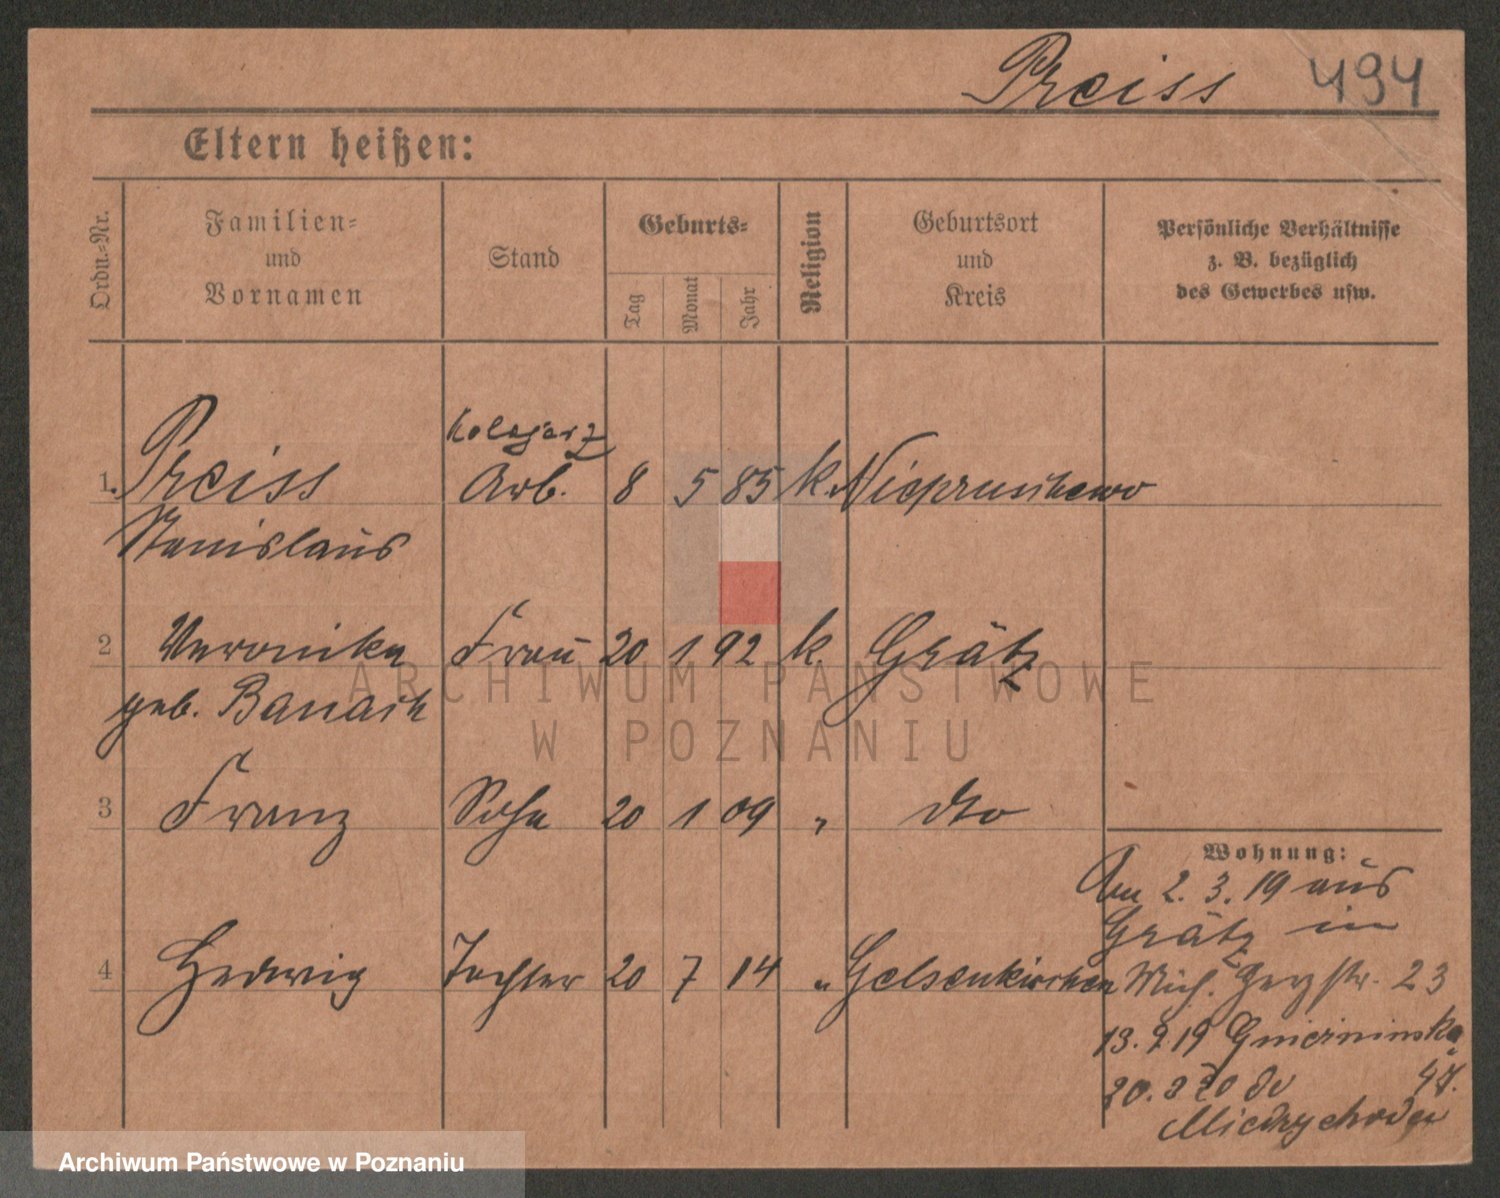 Preiss 494
Eltern heißen:
Ordn.-Nr.
Familien-
und
Vornamen
Stand
Geburts-
Tag
Monat
Jahr
Religion
Geburtsort
und
Kreis
Persönliche Verhältnisse
z. B. bezüglich
des Gewerbes usw.
1. Preiss Arb. 8 5 85 k. Niepruschewo
Stanislaus
2 Veronika Frau 20 1 92 k. Grätz
geb. Banasch
3 Franz Sohn 20 1 09 " dto
4 Hedwig Tochter 20 7 14 " Gelsenkirchen
Wohnung:
Am 2. 3. 19 aus
Grätz in
23
13. 9 19
47.
Miedzychoda
ARCHIWUM PAŃSTWOWE
W POZNANIU
Archiwum Państwowe w Poznaniu